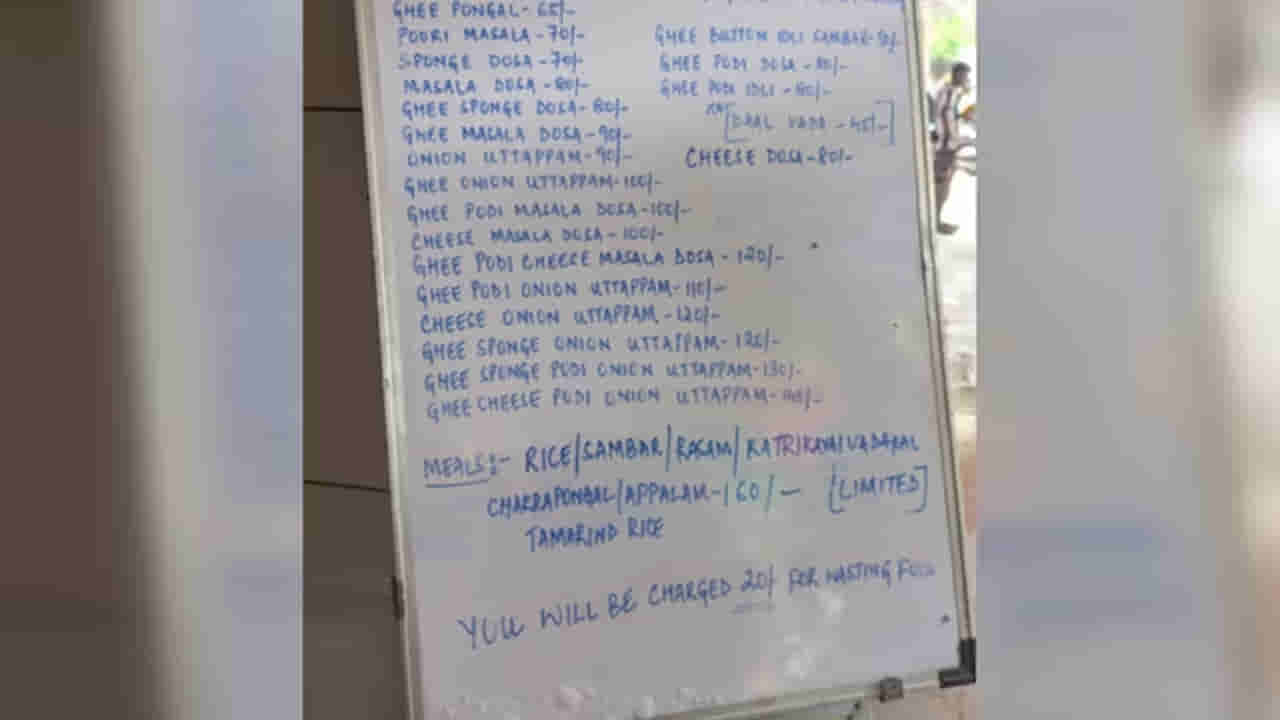 GHEE PONGAL - 65/-
POORI MASALA - 70/-
SPONGE DOSA - 70/-
MASALA DOSA - 80/-
GHEE SPONGE DOSA - 80/-
GHEE MASALA DOSA - 90/-
ONION UTTAPPAM - 90/-
GHEE ONION UTTAPPAM - 100/-
GHEE PODI MASALA DOSA - 100/-
CHEESE MASALA DOSA - 100/-
GHEE PODI CHEESE MASALA DOSA - 120/-
GHEE PODI ONION UTTAPPAM - 110/-
CHEESE ONION UTTAPPAM - 120/-
GHEE SPONGE ONION UTTAPPAM - 120/-
GHEE SPONGE PODI ONION UTTAPPAM - 130/-
GHEE CHEESE PODI ONION UTTAPPAM -
GHEE BUTTON IDLI SAMBAR -
GHEE PODI DOSA - 80/-
GHEE PODI IDLI - 80/-
[DAAL VADA - 45/-]
CHEESE DOSA - 80/-
MEALS:- RICE/SAMBAR/RASAM/KATRIKAYAI VADAKAL
CHAKRAPONGAL/APPALAM - 160/- [LIMITED]
TAMARIND RICE
YOU WILL BE CHARGED 20/- FOR WASTING FOOD